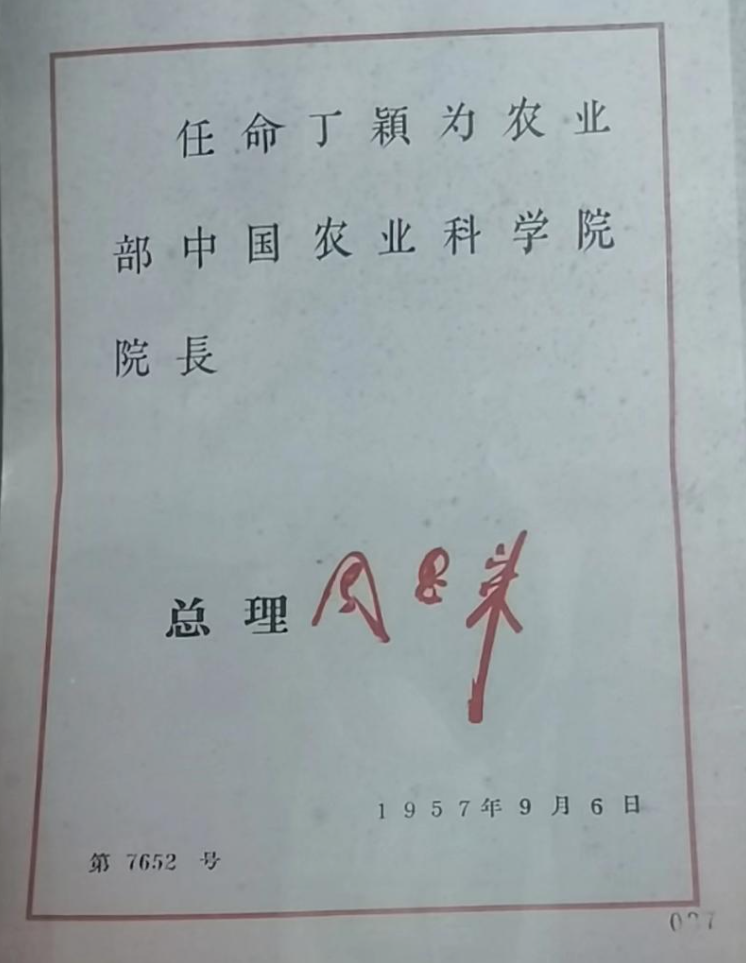 任命丁穎为农业
部中国农业科学院
院長
总理 周恩来
1957年9月6日
第 7652 号
027